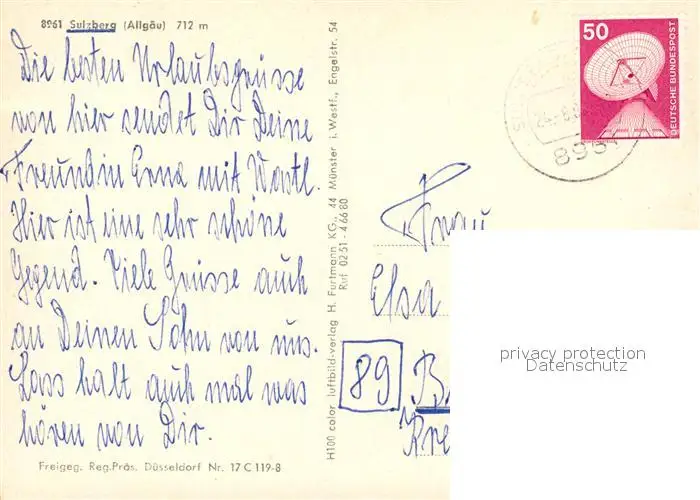 8961 Sulzberg (Allgäu) 712 m
Die besten Urlaubsgrüsse
von hier sendet Dir Deine
Freundin Erna mit Wastl.
Hier ist eine sehr schöne
Gegend. Viele Grüsse auch
an Deinen Sohn von uns.
Lass halt auch mal was
hören von Dir.
Freigeg. Reg.Präs. Düsseldorf Nr. 17 C 119-8
H100 color luftbild-verlag H. Furtmann KG., 44 Münster i. Westf., Engelstr. 54
Ruf 02 51 - 4 66 80
50
DEUTSCHE BUNDESPOST
Frau
Elsa
89
privacy protection
Datenschutz